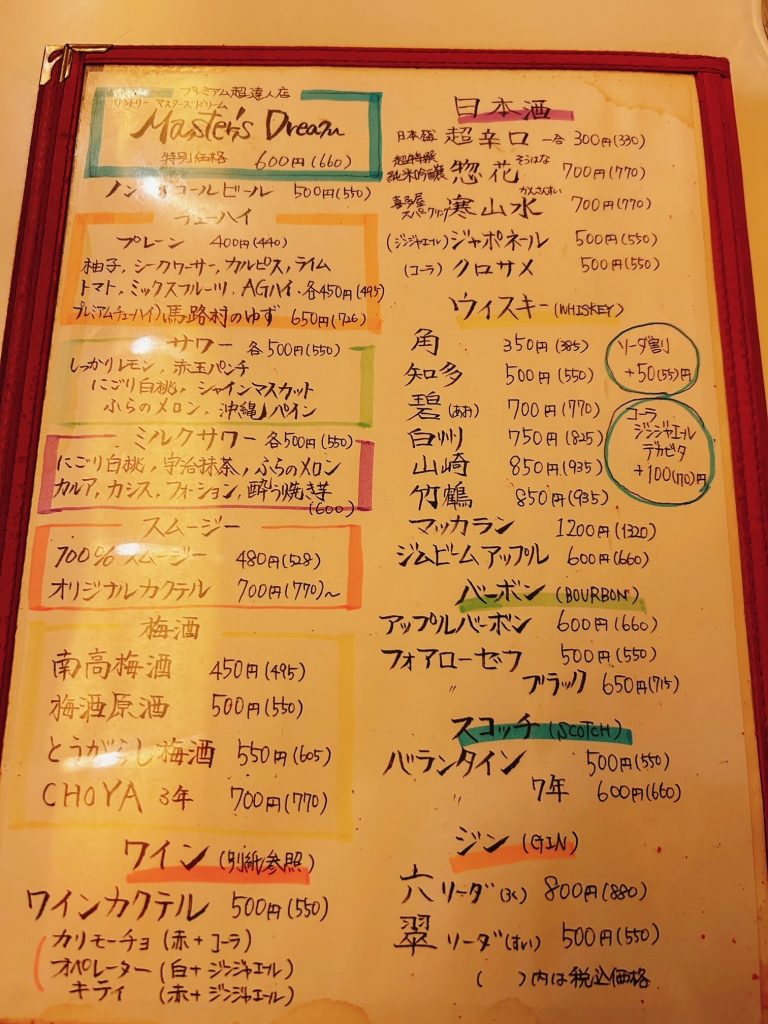 プレミアム超達人店
サントリー マスターズ・ドリーム
Master's Dream
特別価格 600円(660)
ノンアルコールビール 500円(550)
チューハイ
プレーン 400円(440)
柚子, シークワーサー, カルピス, ライム
トマト, ミックスフルーツ, AGハイ, 各450円(495)
プレミアムチューハイ) 馬路村のゆず 650円(726)
サワー 各500円(550)
しっかりレモン, 赤玉パンチ
にごり白桃, シャインマスカット
ふらのメロン, 沖縄パイン
ミルクサワー 各500円(550)
にごり白桃, 宇治抹茶, ふらのメロン
カルア, カシス, フォーション, 酔う焼き芋
(600)
スムージー
100%スムージー 480円(528)
オリジナルカクテル 700円(770)~
梅酒
南高梅酒 450円(495)
梅酒原酒 500円(550)
とうがらし梅酒 550円(605)
CHOYA 3年 700円(770)
ワイン (別紙参照)
ワインカクテル 500円(550)
カリモーチョ (赤+コーラ)
オペレーター (白+ジンジャエール)
キティ (赤+ジンジャエール)
日本酒
日本盛 超辛口 一合 300円(330)
超特撰 純米吟醸 惣花 そうはな 700円(770)
喜多屋 スパークリング 寒山水 かんさんすい 700円(770)
(ジンジャエール) ジャポネール 500円(550)
(コーラ) クロサメ 500円(550)
ウィスキー (WHISKEY)
角 350円(385)
知多 500円(550)
碧(あお) 700円(770)
白州 750円(825)
山崎 850円(935)
竹鶴 850円(935)
ソーダ割
+50(55)円
コーラ
ジンジャエール
デカビタ
+100(110)円
マッカラン 1200円(1320)
ジムビームアップル 600円(660)
バーボン (BOURBON)
アップルバーボン 600円(660)
フォアローゼツ 500円(550)
〃 ブラック 650円(715)
スコッチ (SCOTCH)
バランタイン 500円(550)
〃 7年 600円(660)
ジン (GIN)
六 リーダ(ろく) 800円(880)
翠 ソーダ(すい) 500円(550)
( )内は税込価格